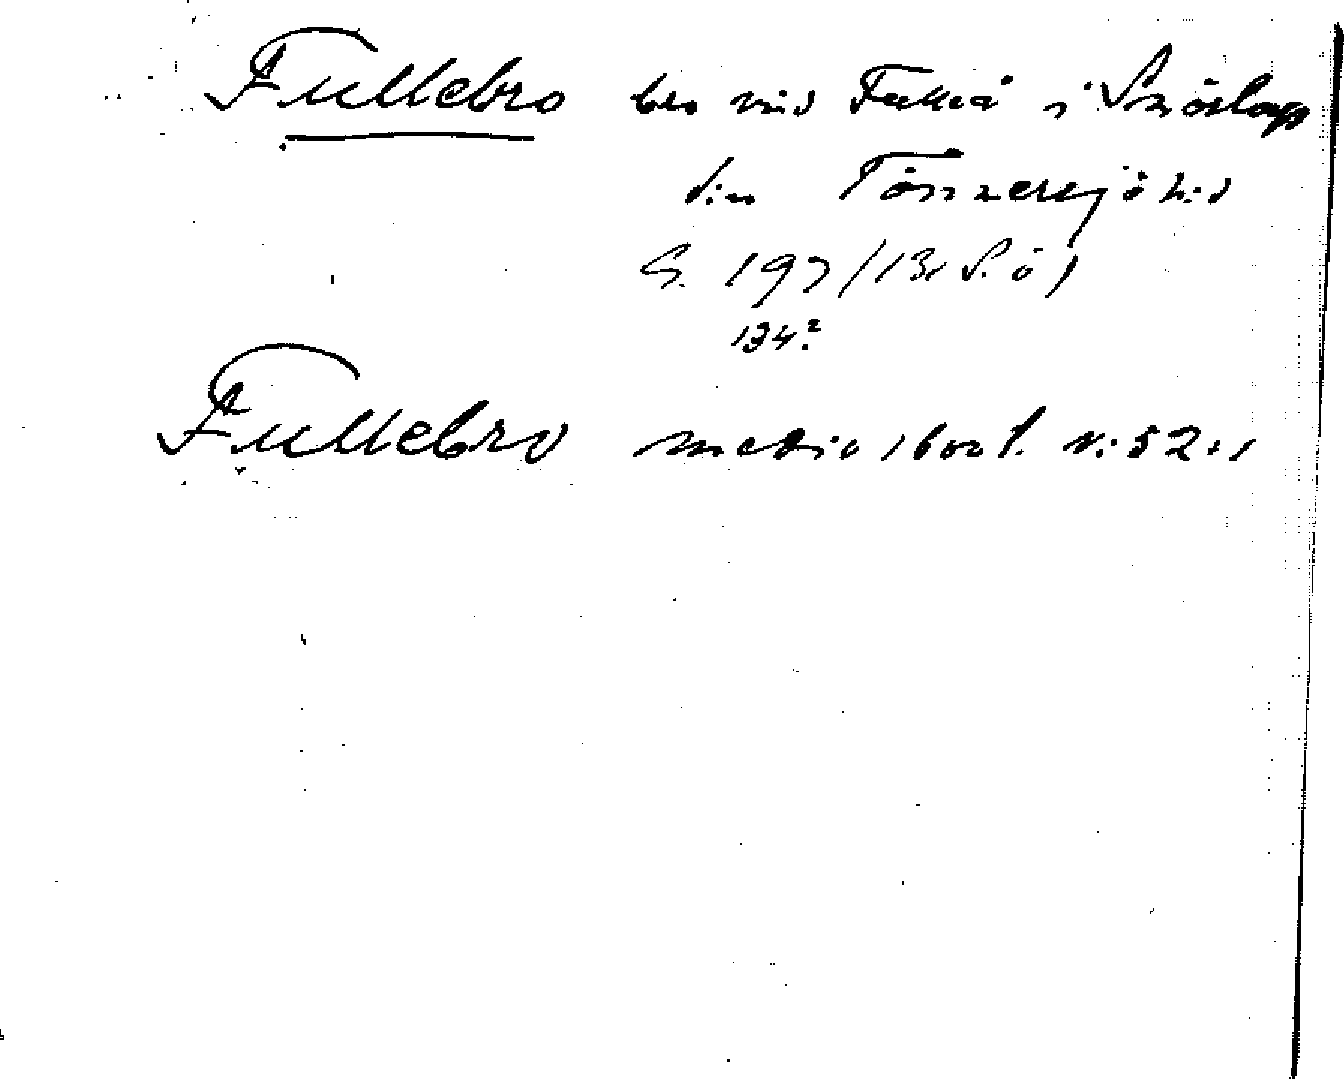 Fullebro bro vid Fulleå i Snöstorp
sn Tönnersjö hd
G. 197/13, S. ö
134.2
Fullebro medio 1600 t. N: 52:1